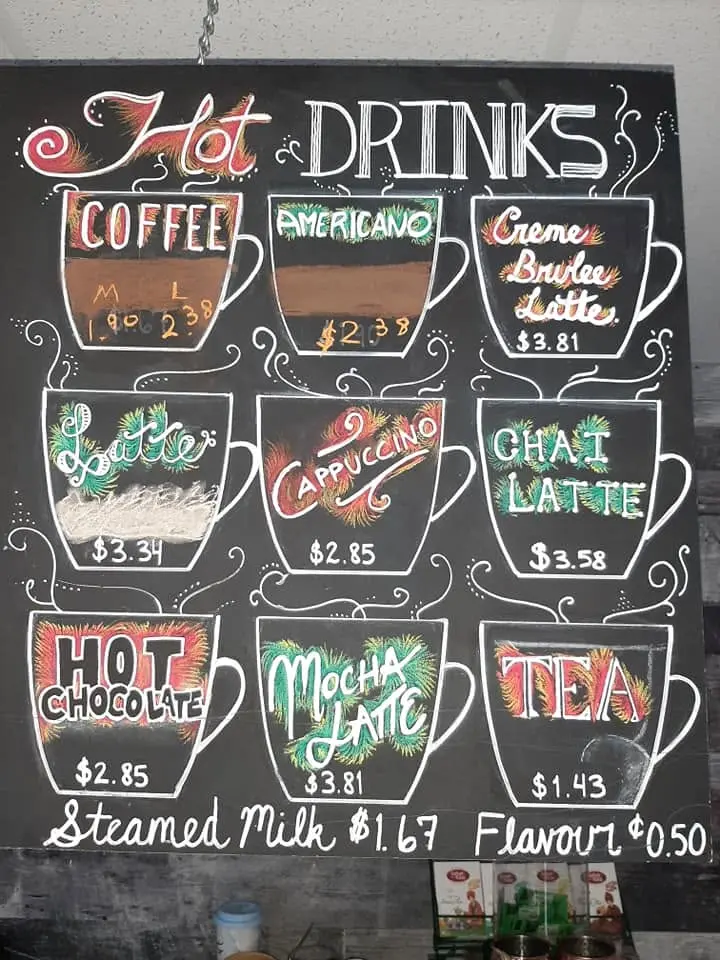 Hot DRINKS
COFFEE
M L
1.90 2.38
AMERICANO
$2.38
Creme
Brulee
Latte.
$3.81
Latte
$3.34
CAPPUCCINO
$2.85
CHAI
LATTE
$3.58
HOT
CHOCOLATE
$2.85
MOCHA
LATTE
$3.81
TEA
$1.43
Steamed Milk $1.67 Flavour ¢0.50